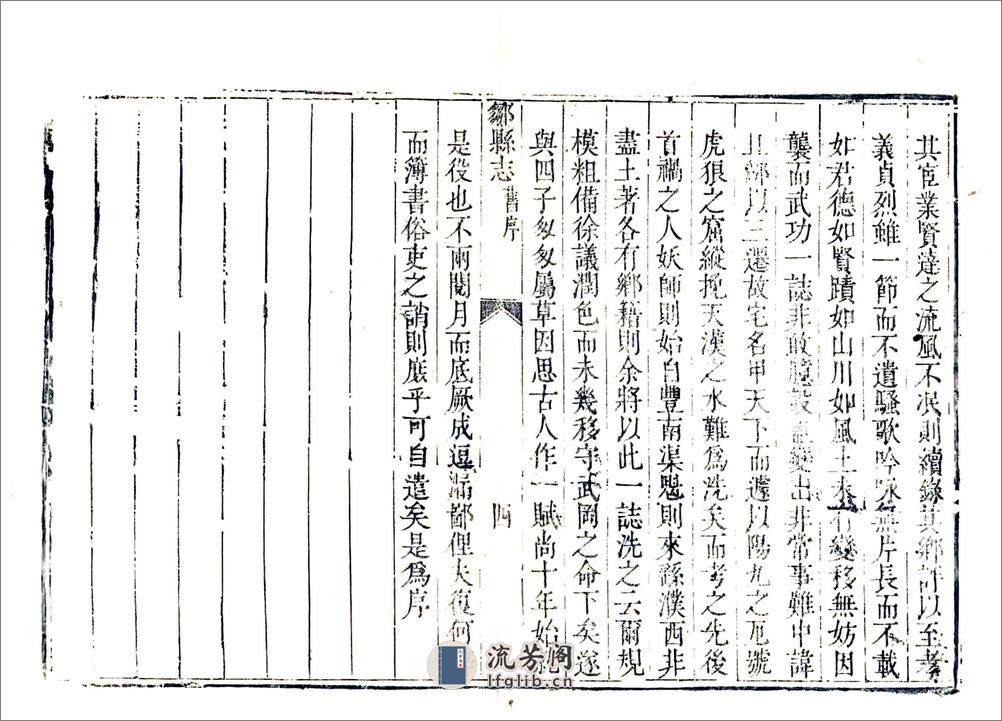 其宦業賢達之流風不泯則續錄其鄉評以至孝
義貞烈雖一節而不遺騷歌吟咏無片長而不載
如君德如賢蹟如山川如風土未有變移無妨因
襲而武功一誌非敢臆設蓋變出非常事難中諱
且鄒以三遷故宅名甲天下而遽以陽九之厄號
虎狼之窟縱挽天漢之水難爲洗矣而考之先後
首禍之人妖師則始自豐南渠魁則來繇濮西非
盡土著各有鄉籍則余將以此一誌洗之云爾規
模粗備徐議潤色而未幾移守武岡之命下矣遂
與四子匆匆屬草因思古人作一賦尚十年始就
鄒縣志 舊序 四
是役也不兩閱月而底厥成逗漏鄙俚夫復何
而簿書俗吏之誚則庶乎可自遣矣是爲序
流芳阁
lfglib.cn